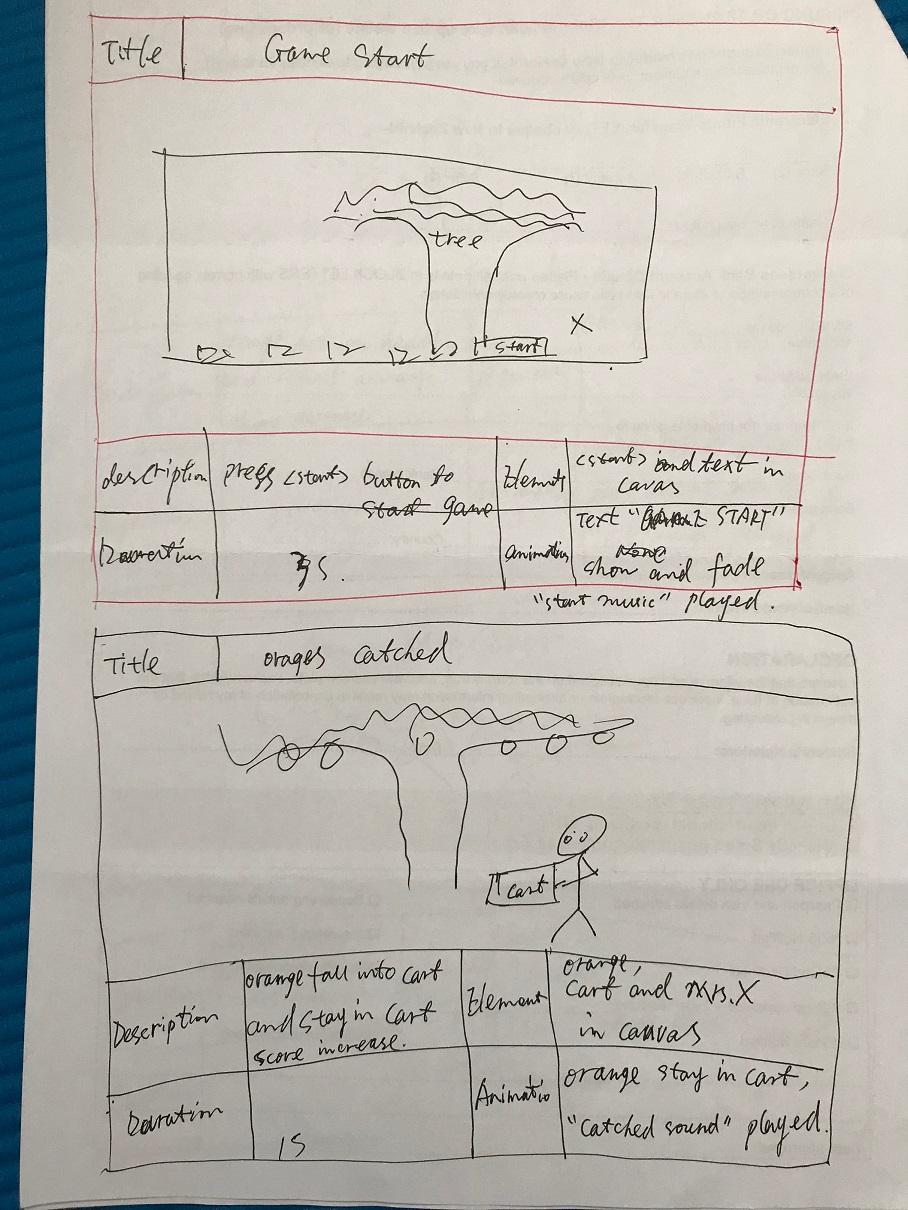 Title Game Start
tree
start X
description press <start> button to
start game
Elements <start> and text in
cavas
Duration 3s.
animation Text "GAME START"
show and fade
"start music" played.
Title orages catched
cart
Description orange fall into cart
and stay in cart
score increase.
Element orange,
cart and mrs.X
in canvas
Duration 1s
Animatio orange stay in cart,
"catched sound" played.